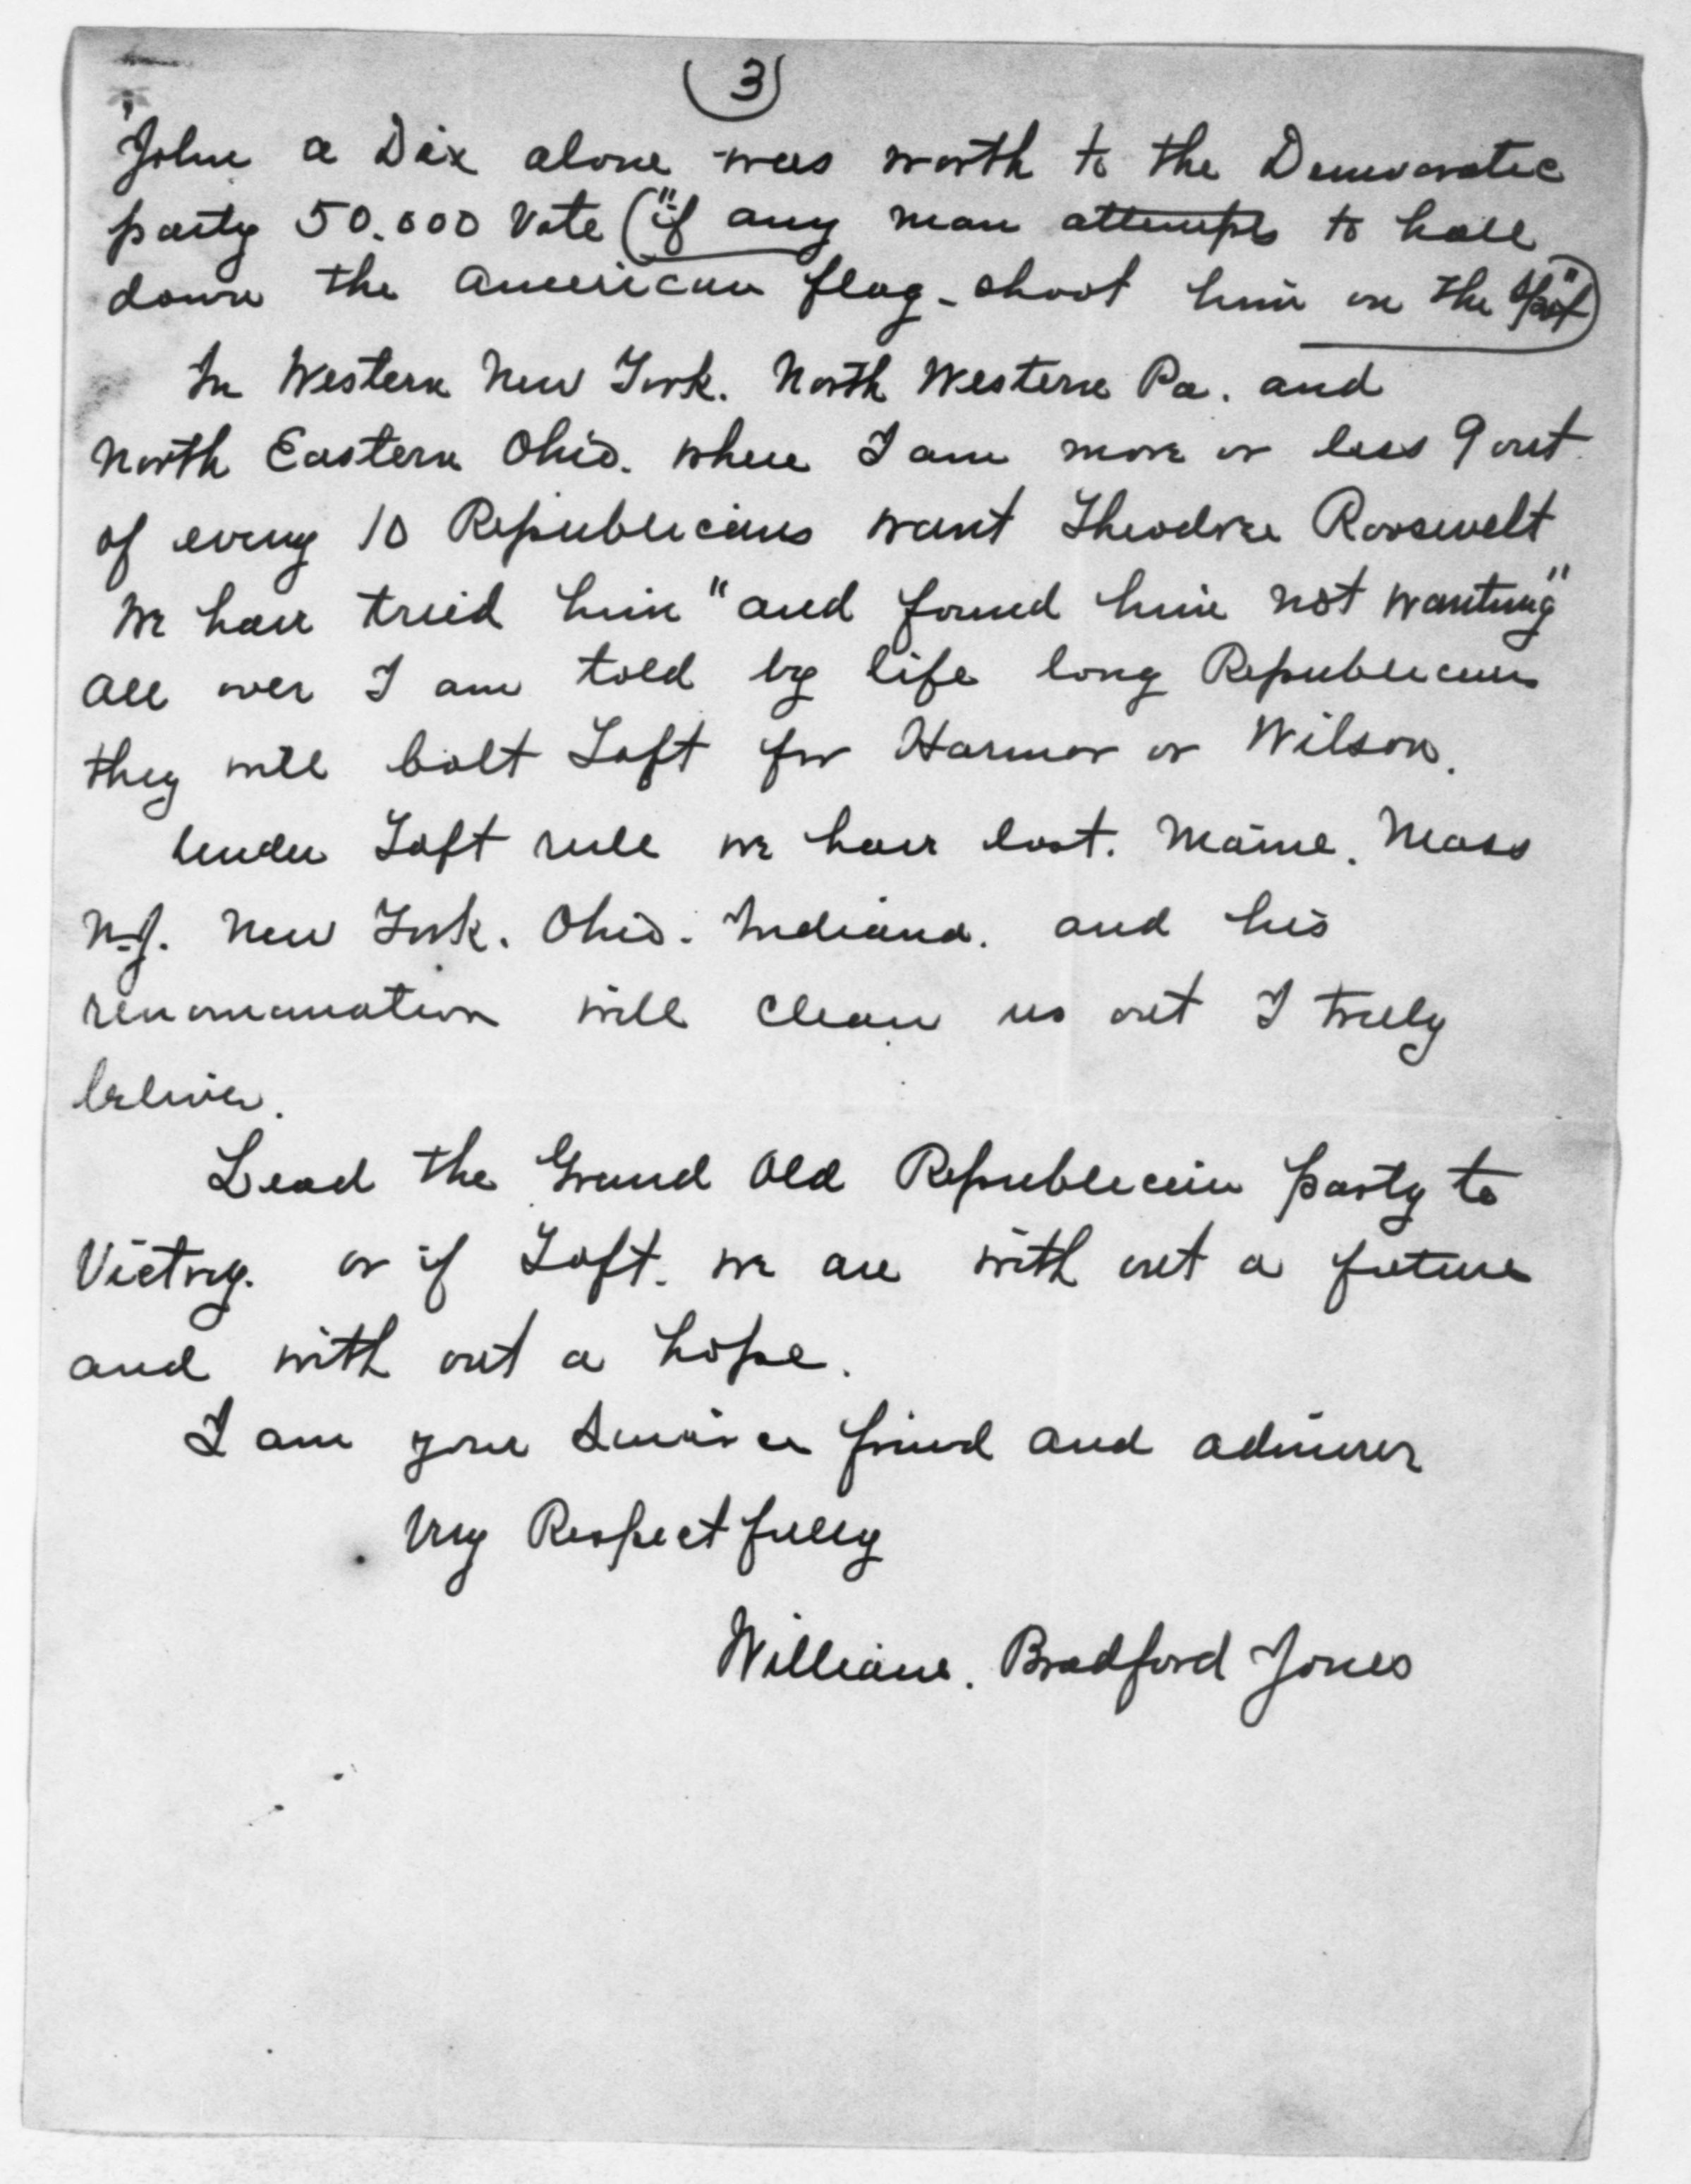 (3)
John a Dix alone was worth to the Democratic
party 50.000 Vote ("if any man attempts to hall
down the american flag - shoot him on the spot")
In Western New York. North Western Pa. and
North Eastern Ohio. where I am more or less 9 out
of every 10 Republicans want Theodore Roosevelt
We have tried him "and found him not wanting"
all over I am told by life long Republicans
they will bolt Taft for Harmon or Wilson.
Under Taft rule we have lost. Maine. Mass
N.J. New York. Ohio. Indiana. and his
renomanation will clean us out I truly
believe.
Lead the Grand Old Republican party to
Victory. or if Taft. we are with out a future
and with out a hope.
I am your Sincere friend and admirer
Very Respectfully
William. Bradford Jones